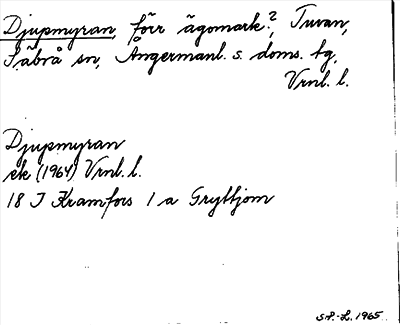 Djupmyran, förr ägomark?, Tuvan,
Säbrå sn, Ångermanl. s. doms. tg,
Vrnl. l.
Djupmyran
ek (1964) Vrnl. l.
18 J Kramfors 1 a Gryttjom
SA.-L. 1965